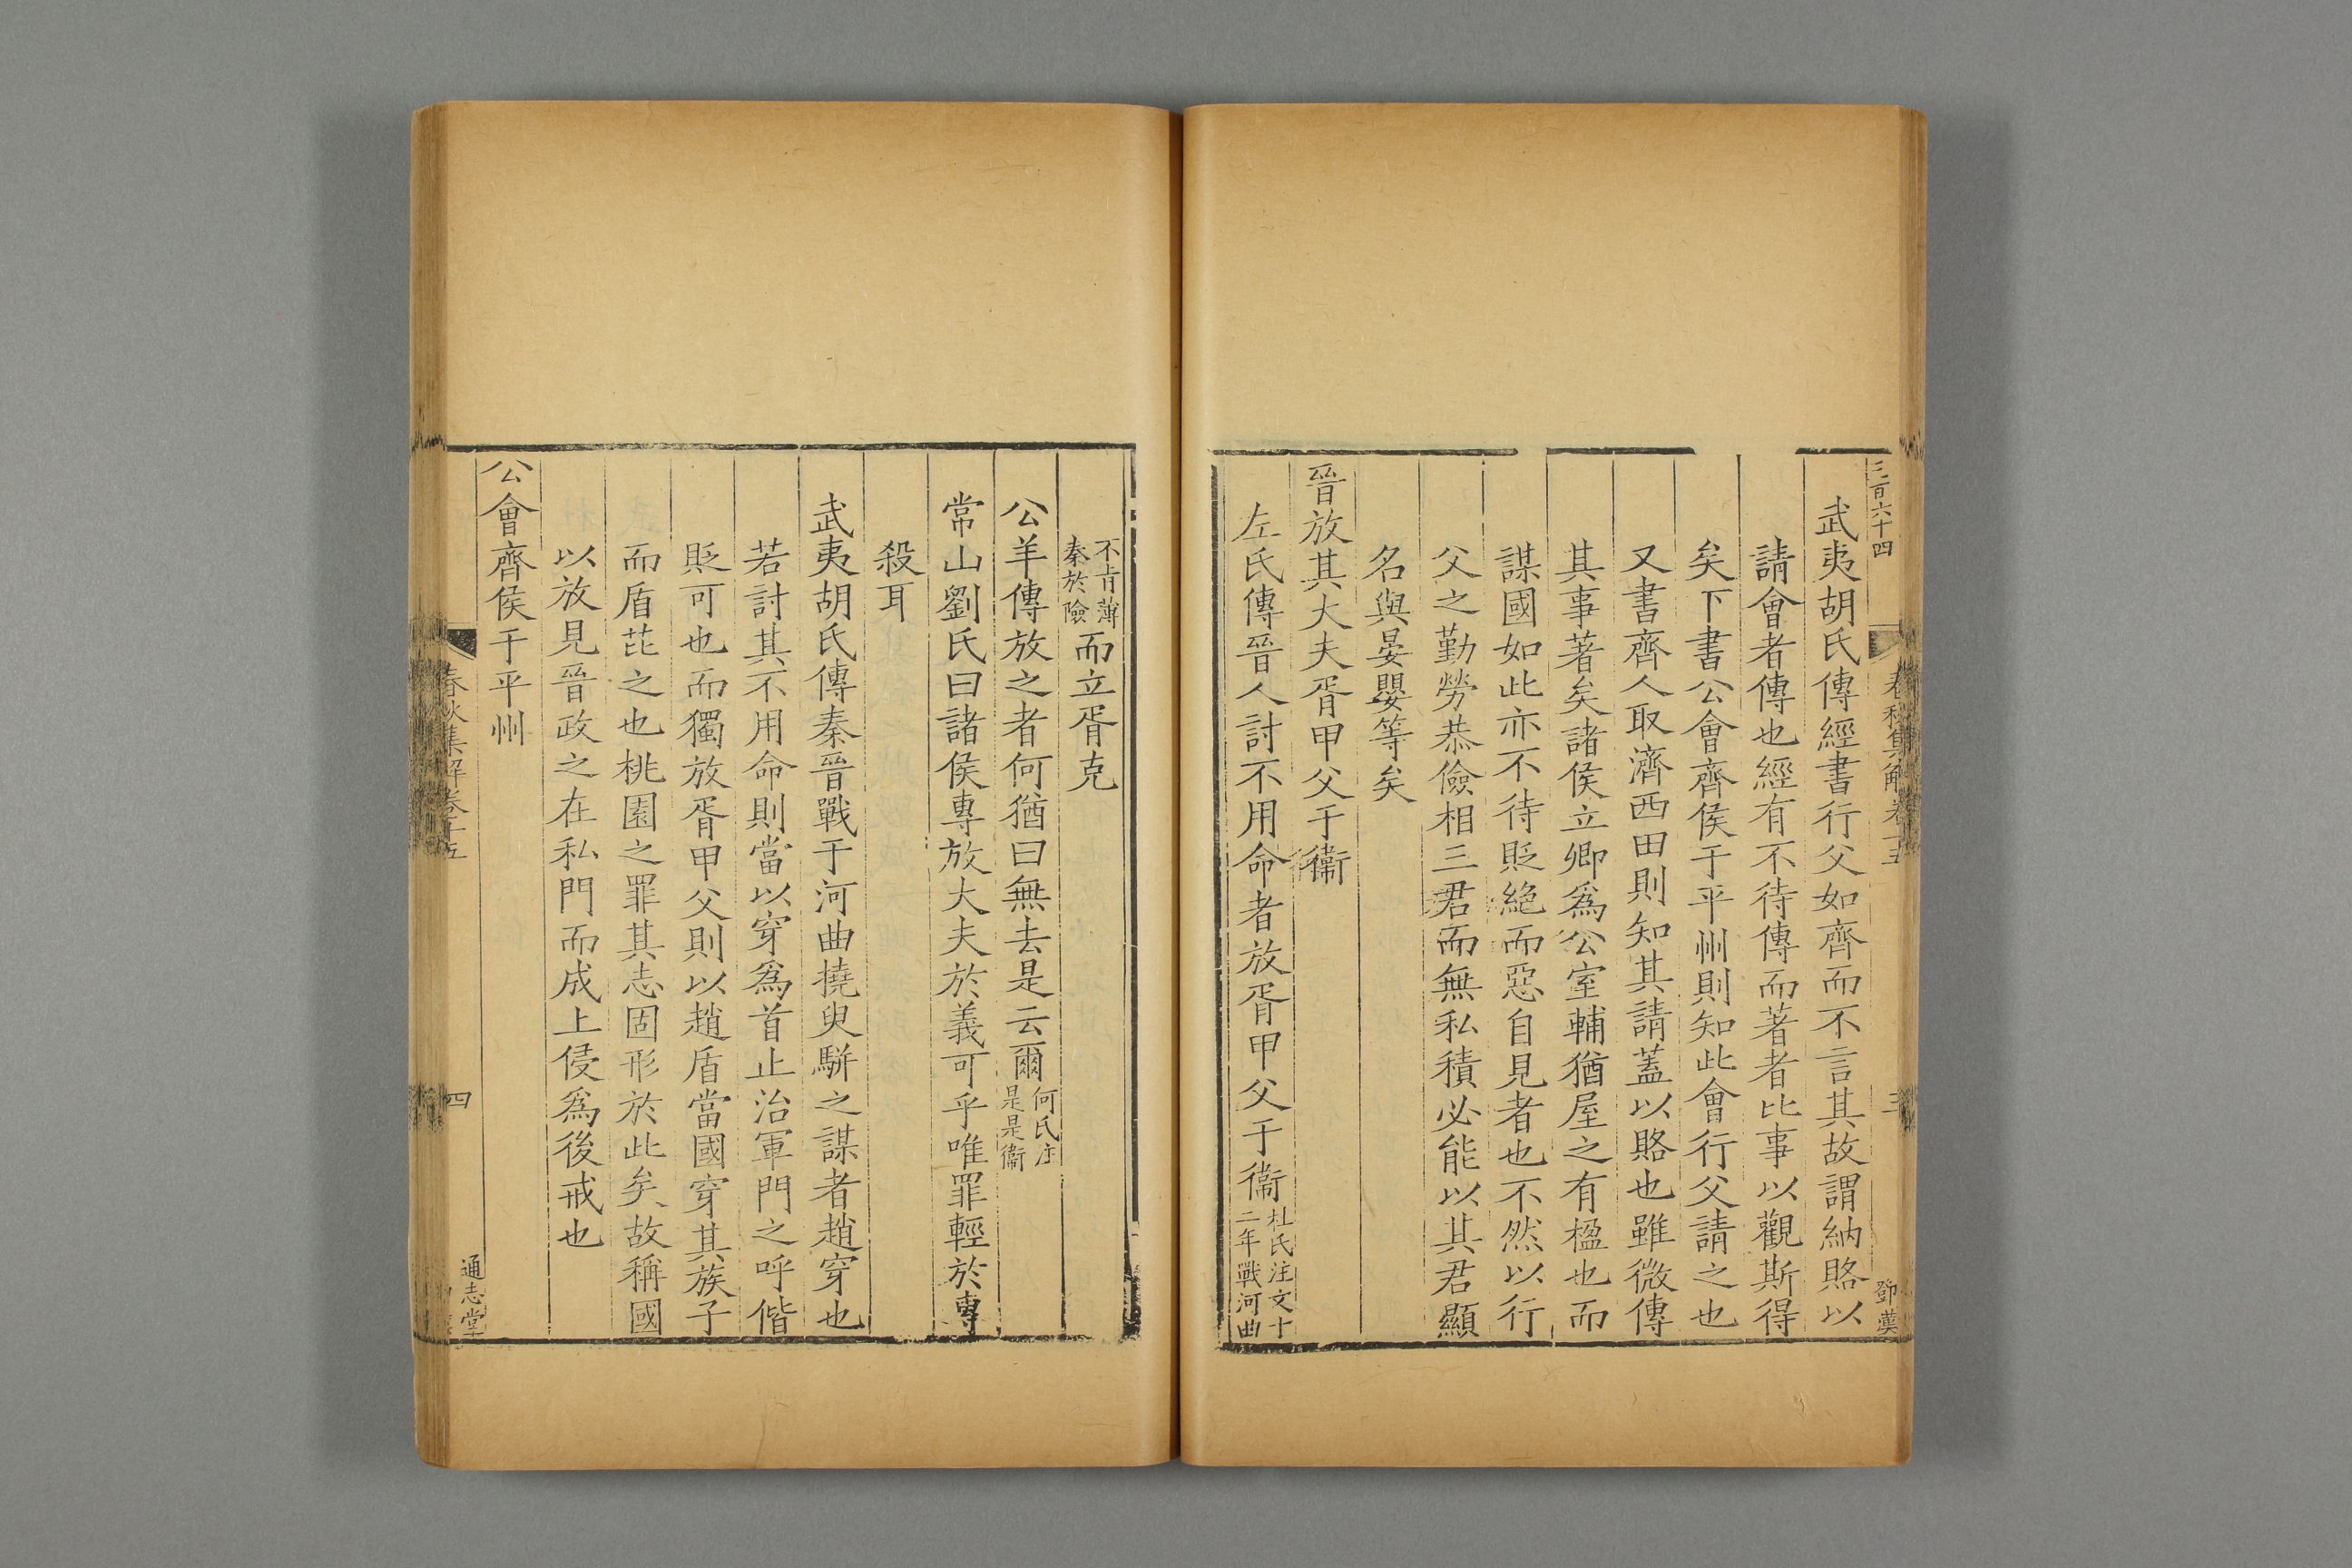 三百六十四
春秋集解卷十五
三
鄧漢
武夷胡氏傳經書行父如齊而不言其故謂納賂以
請會者傳也經有不待傳而著者比事以觀斯得
矣下書公會齊侯于平州則知此會行父請之也
又書齊人取濟西田則知其請蓋以賂也雖微傳
其事著矣諸侯立卿爲公室輔猶屋之有楹也而
謀國如此亦不待貶絶而惡自見者也不然以行
父之勤勞恭儉相三君而無私積必能以其君顯
名與晏嬰等矣
晉放其大夫胥甲父于衞
左氏傳晉人討不用命者放胥甲父于衞杜氏注文十
二年戰河曲
不肯薄
秦於險而立胥克
公羊傳放之者何猶曰無去是云爾何氏注
是是衞
常山劉氏曰諸侯專放大夫於義可乎唯罪輕於專
殺耳
武夷胡氏傳秦晉戰于河曲撓臾駢之謀者趙穿也
若討其不用命則當以穿爲首止治軍門之呼偕
貶可也而獨放胥甲父則以趙盾當國穿其族子
而盾芘之也桃園之罪其志固形於此矣故稱國
以放見晉政之在私門而成上侵爲後戒也
公會齊侯于平州
春秋集解卷十五
四
通志堂